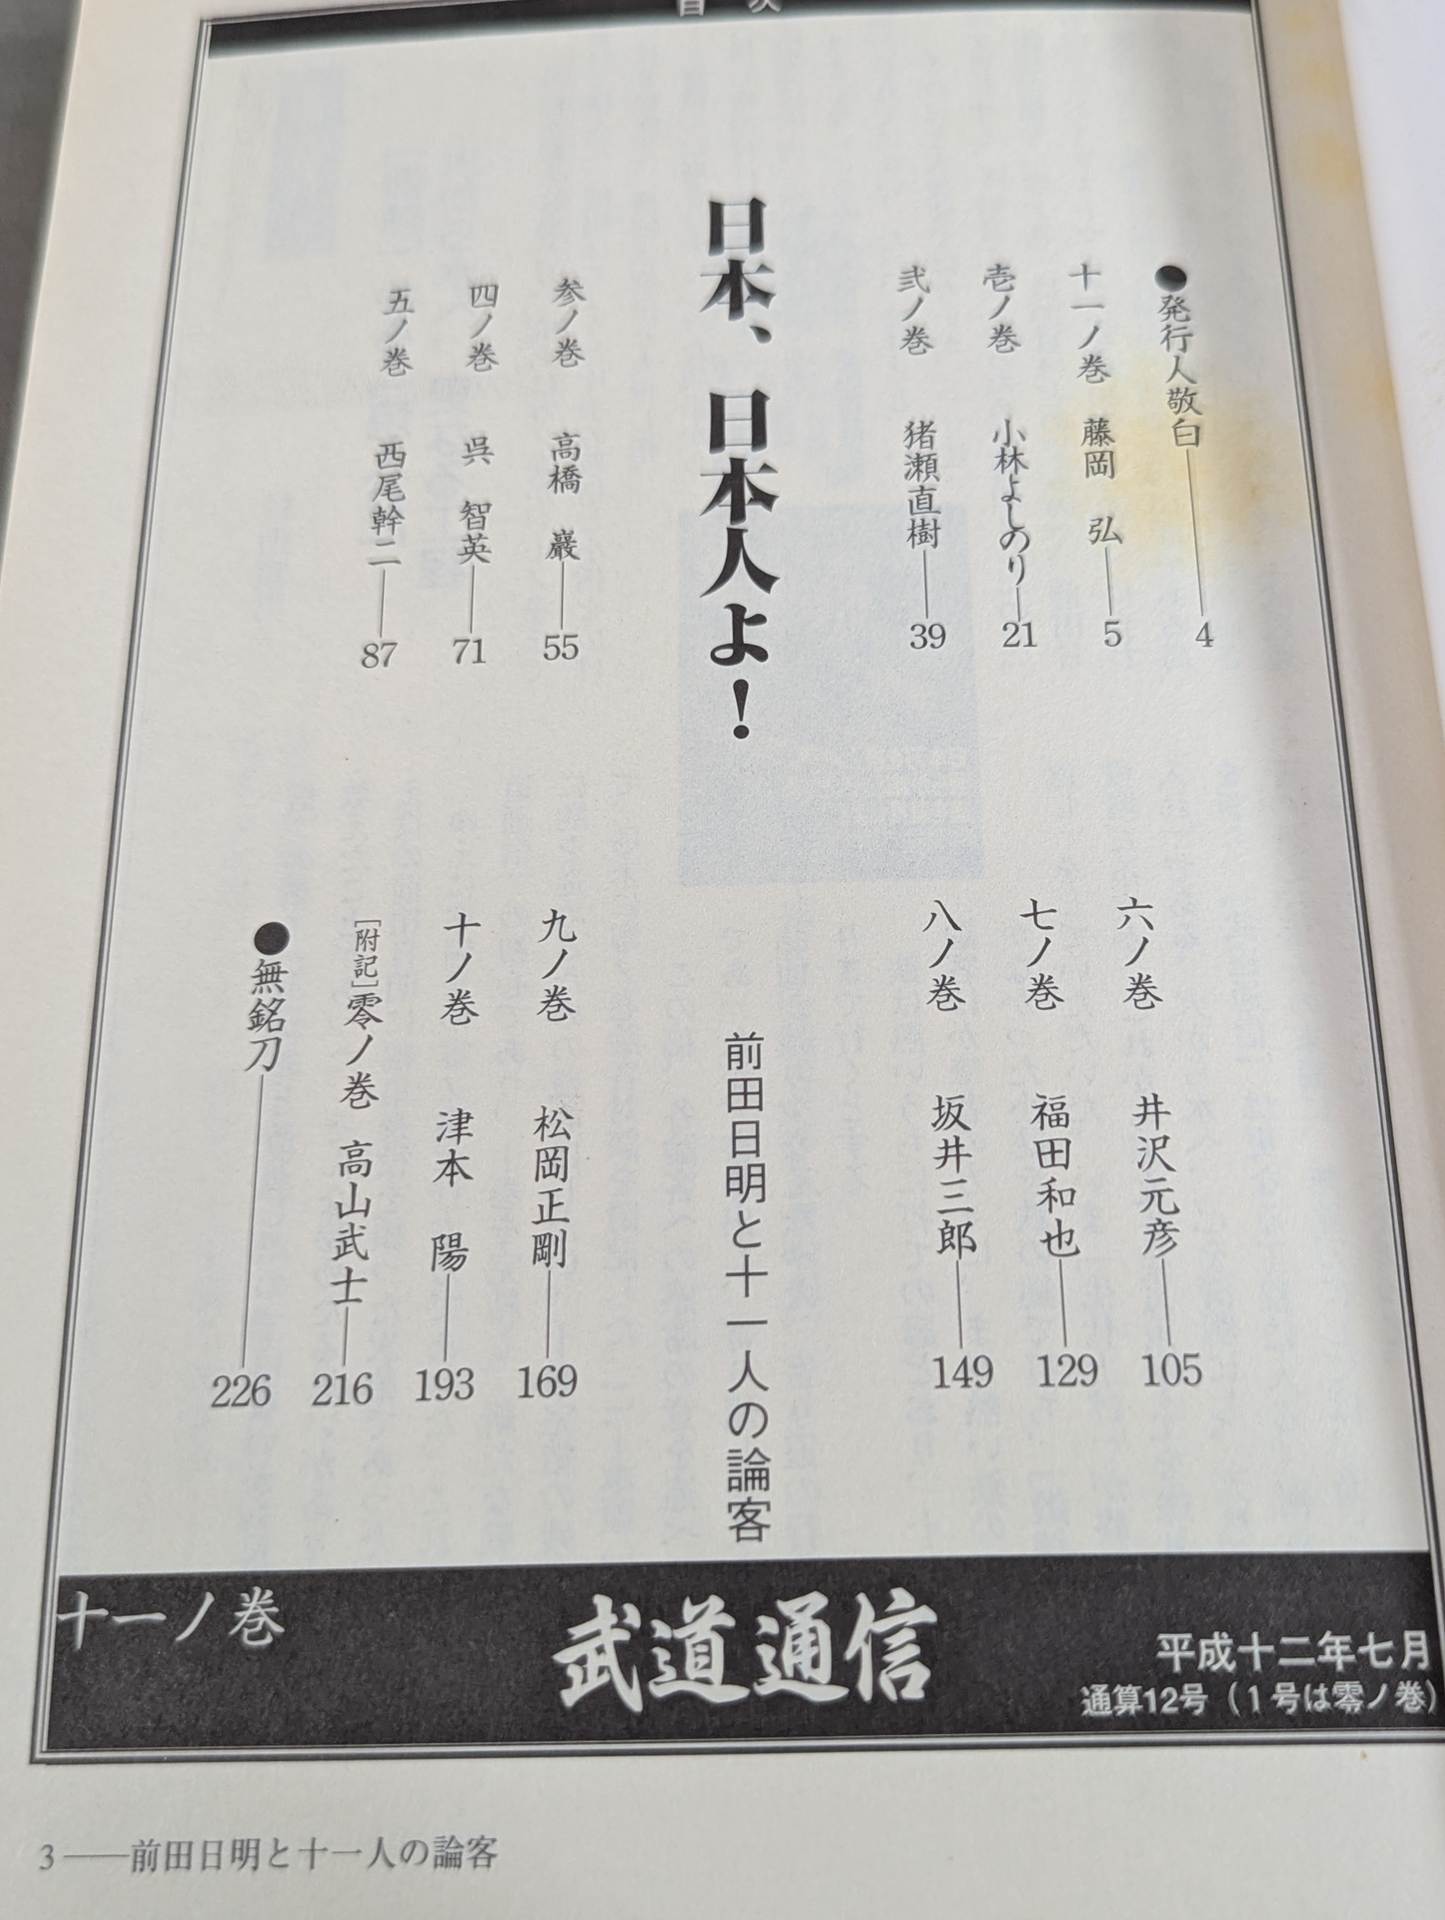 目次
●発行人敬白 4
十一ノ巻 藤岡 弘 5
壱ノ巻 小林よしのり 21
弐ノ巻 猪瀬直樹 39
日本、日本人よ!
参ノ巻 高橋 巖 55
四ノ巻 呉 智英 71
五ノ巻 西尾幹二 87
六ノ巻 井沢元彦 105
七ノ巻 福田和也 129
八ノ巻 坂井三郎 149
前田日明と十一人の論客
九ノ巻 松岡正剛 169
十ノ巻 津本 陽 193
[附記]零ノ巻 高山武士 216
●無銘刀 226
十一ノ巻
武道通信
平成十二年七月
通算12号(1号は零ノ巻)
3――前田日明と十一人の論客